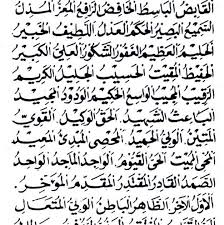 القَابِضُ البَاسِطُ الخَافِضُ الرَّافِعُ المُعِزُّ المُذِلُّ
السَّمِيعُ البَصِيرُ الحَكَمُ العَدْلُ اللَّطِيفُ الخَبِيرُ
الحَلِيمُ العَظِيمُ الغَفُورُ الشَّكُورُ العَلِيُّ الكَبِيرُ
الحَفِيظُ المُقِيتُ الحَسِيبُ الجَلِيلُ الكَرِيمُ
الرَّقِيبُ المُجِيبُ الوَاسِعُ الحَكِيمُ الوَدُودُ المَجِيدُ
البَاعِثُ الشَّهِيدُ الحَقُّ الوَكِيلُ القَوِيُّ
المَتِينُ الوَلِيُّ الحَمِيدُ المُحْصِي المُبْدِئُ المُعِيدُ
المُحْيِي المُمِيتُ الحَيُّ القَيُّومُ الوَاجِدُ المَاجِدُ الوَاحِدُ
الصَّمَدُ القَادِرُ المُقْتَدِرُ المُقَدِّمُ المُؤَخِّرُ
الأَوَّلُ الآخِرُ الظَّاهِرُ البَاطِنُ الوَالِي المُتَعَالِ